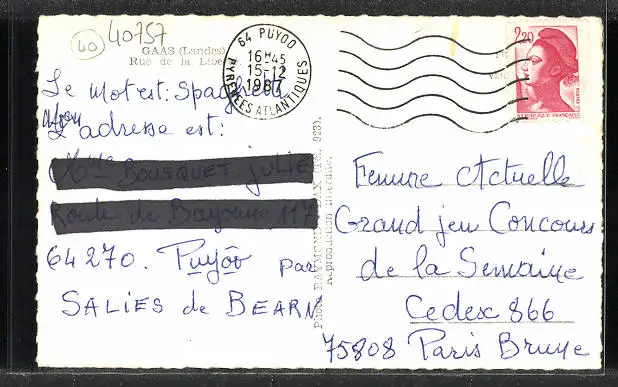 40 40757
GAAS (Landes)
Rue de la Libe
64 PUYOO
16H45
15-12
1987
PYRENEES ATLANTIQUES
2,20
REPUBLIQUE FRANÇAISE
POSTES
Le mot est: Spaghetti
L'adresse est:
64270. Puyôo par
SALIES de BEARN
Reproduction interdite.
Femme Actuelle
Grand jeu Concours
de la Semaine
Cedex 866
75808 Paris Brune